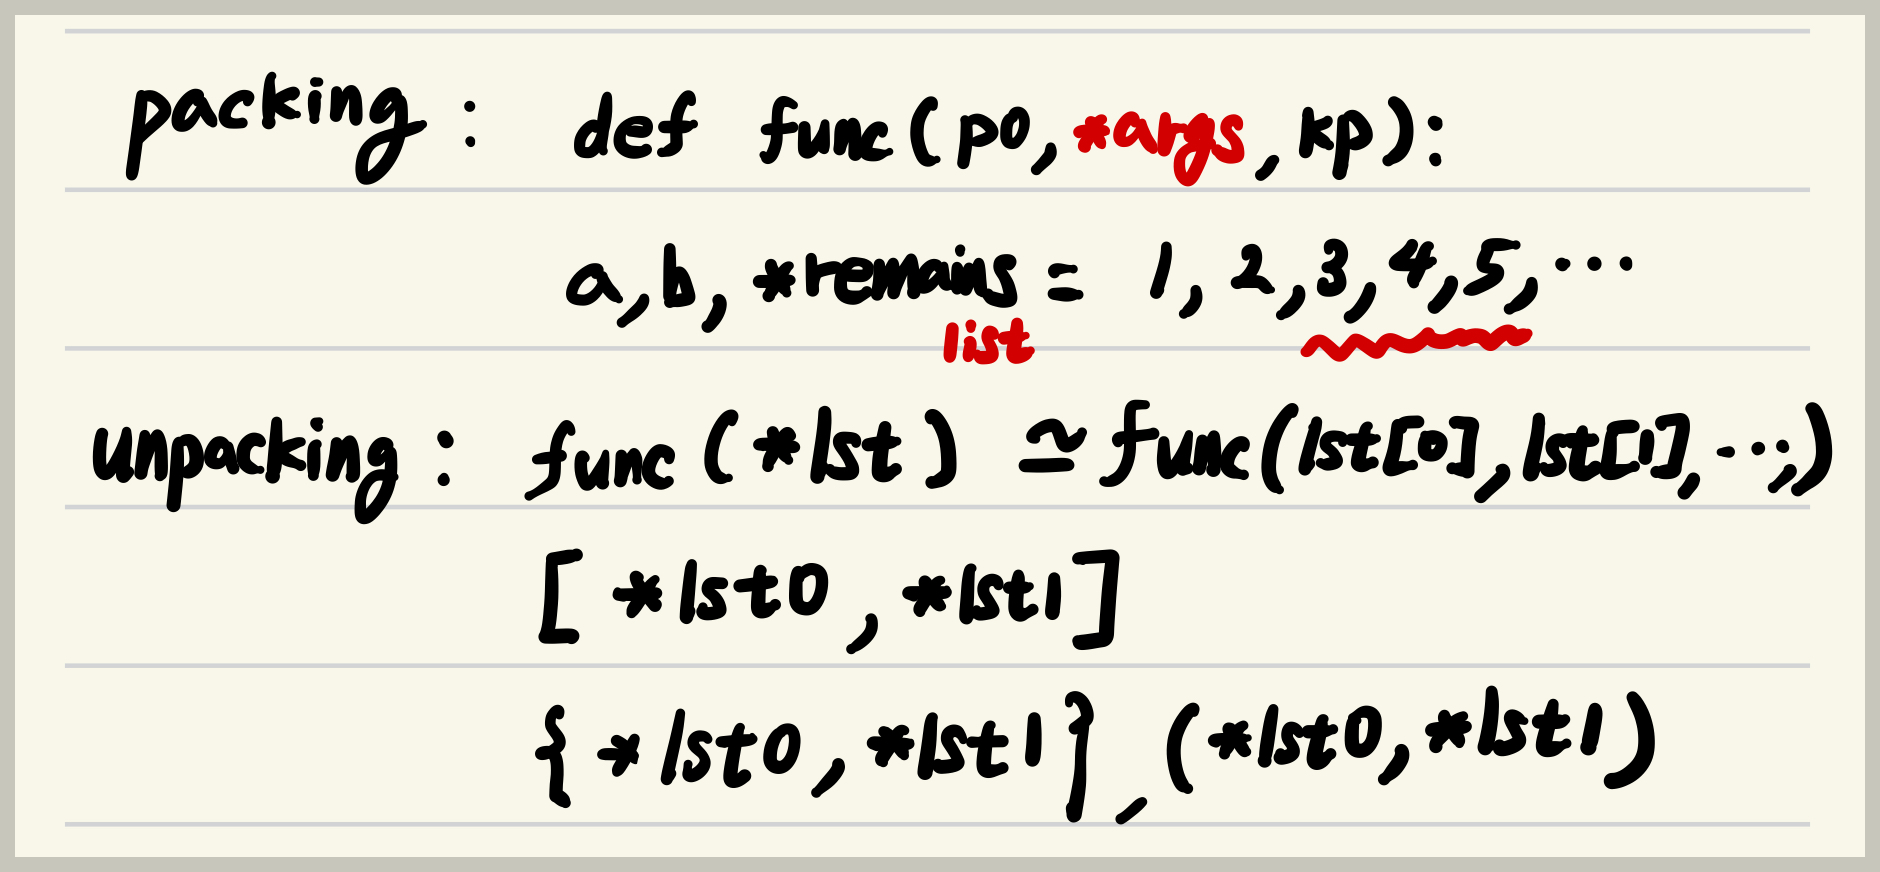 packing : def func(p0, *args, kp):
a, b, *remains = 1, 2, 3, 4, 5, ...
list
unpacking : func (*lst) ≃ func(lst[0], lst[1], ...,)
[ *lst0 , *lst1 ]
{ *lst0 , *lst1 }, (*lst0, *lst1 )